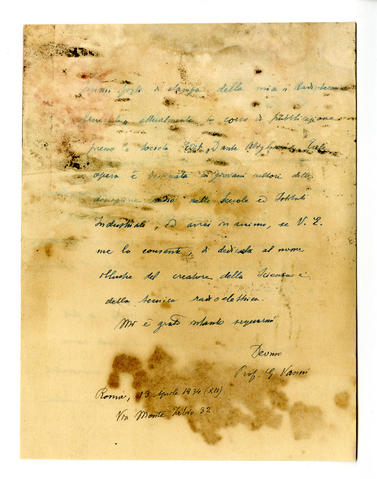 di stampa della mia "Radiotecnica
attualmente in corso di pubblicazione
presso la Società Dante Alighieri
opera è destinata ai giovani cultori delle
radio nelle Scuole e Istituti
Industriali, ed avrei in animo, se V. E.
me lo consente, di dedicarla al nome
illustre del creatore della Scienza e
della tecnica radioelettrica.
Mi è grato intanto segnarmi
Devmo
Prof. G. Vanni
Roma, 13 Aprile 1934 (XII)
Via Monte Zebio 32